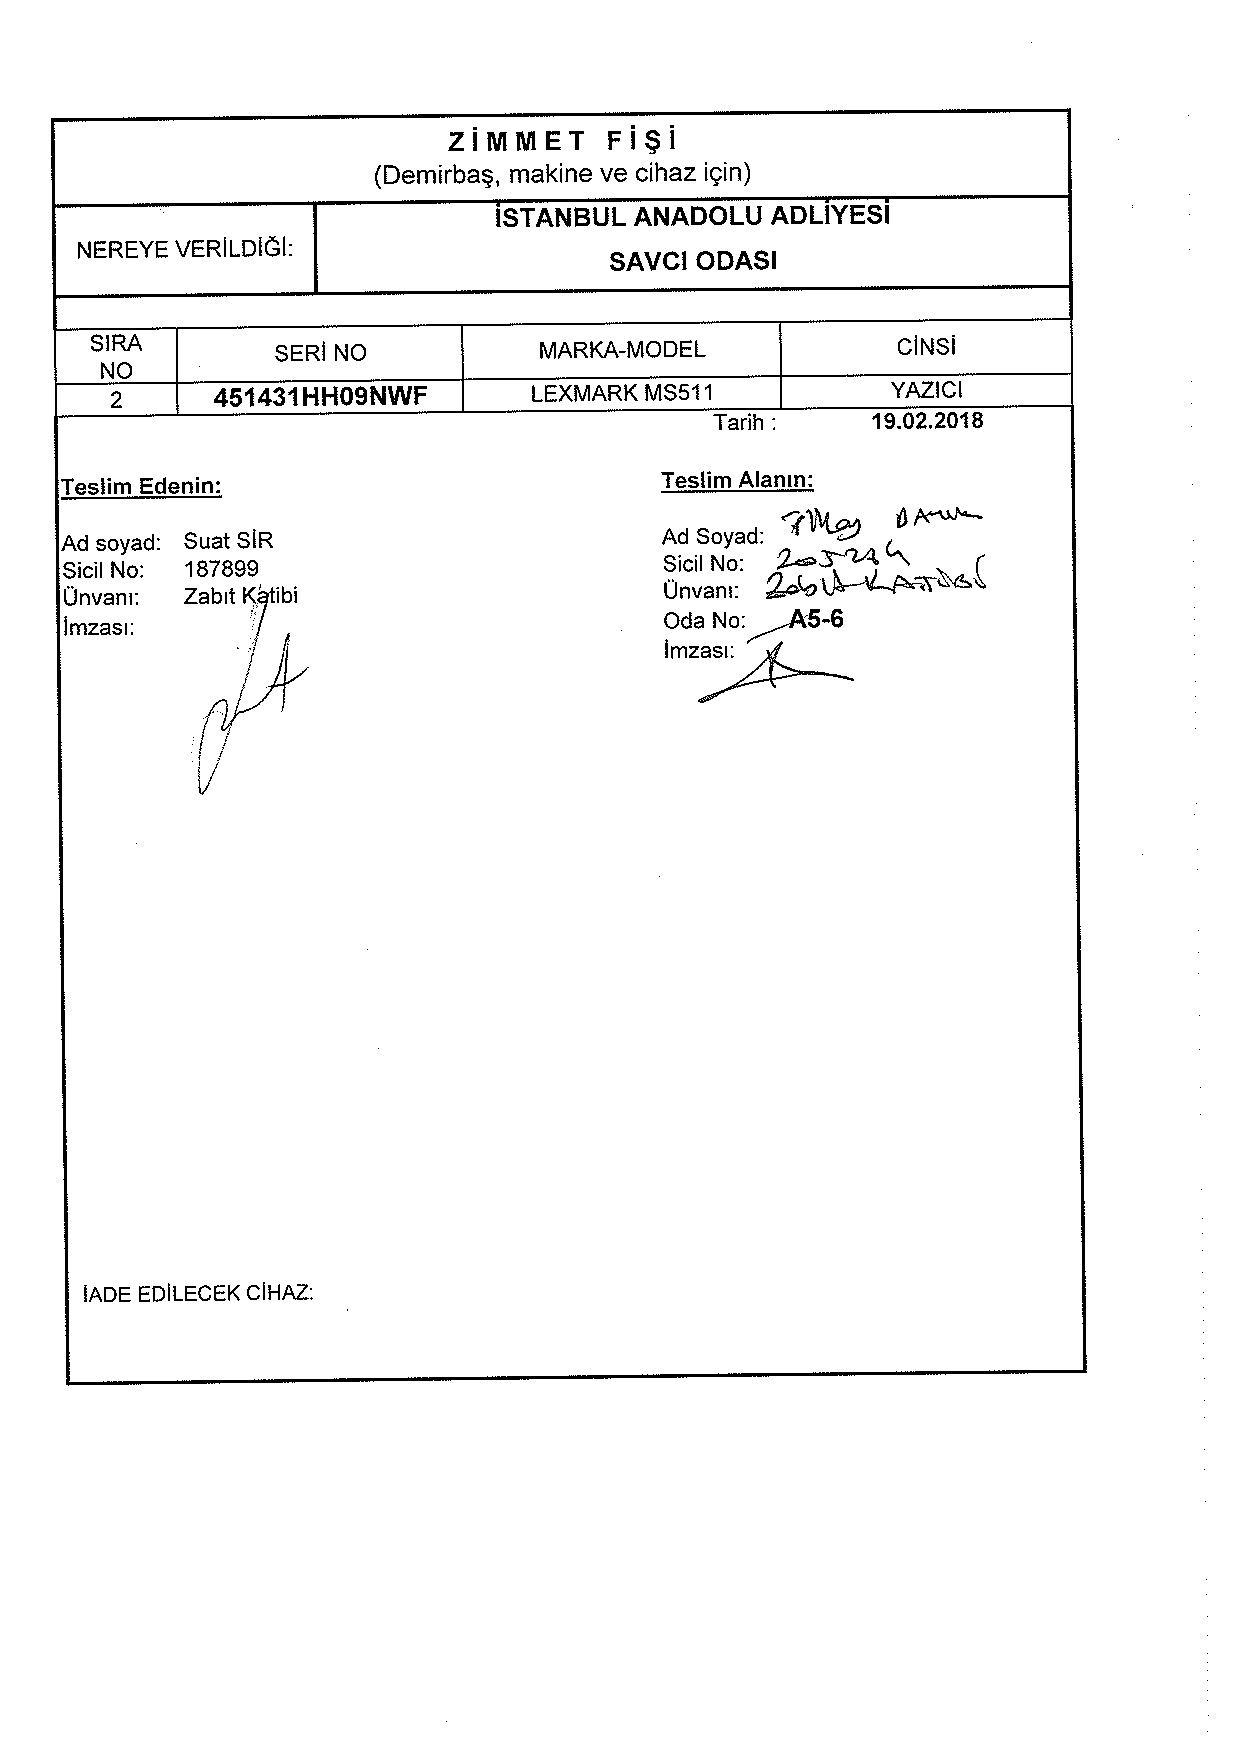 ZİMMET FİŞİ
(Demirbaş, makine ve cihaz için)
NEREYE VERİLDİĞİ:
İSTANBUL ANADOLU ADLİYESİ
SAVCI ODASI
SIRA NO SERİ NO MARKA-MODEL CİNSİ
2 451431HH09NWF LEXMARK MS511 YAZICI
Tarih : 19.02.2018
Teslim Edenin:
Ad soyad: Suat SİR
Sicil No: 187899
Ünvanı: Zabıt Katibi
İmzası:
Teslim Alanın:
Ad Soyad:
Sicil No:
Ünvanı: Zabıt KATİBİ
Oda No: A5-6
İmzası:
İADE EDİLECEK CİHAZ: